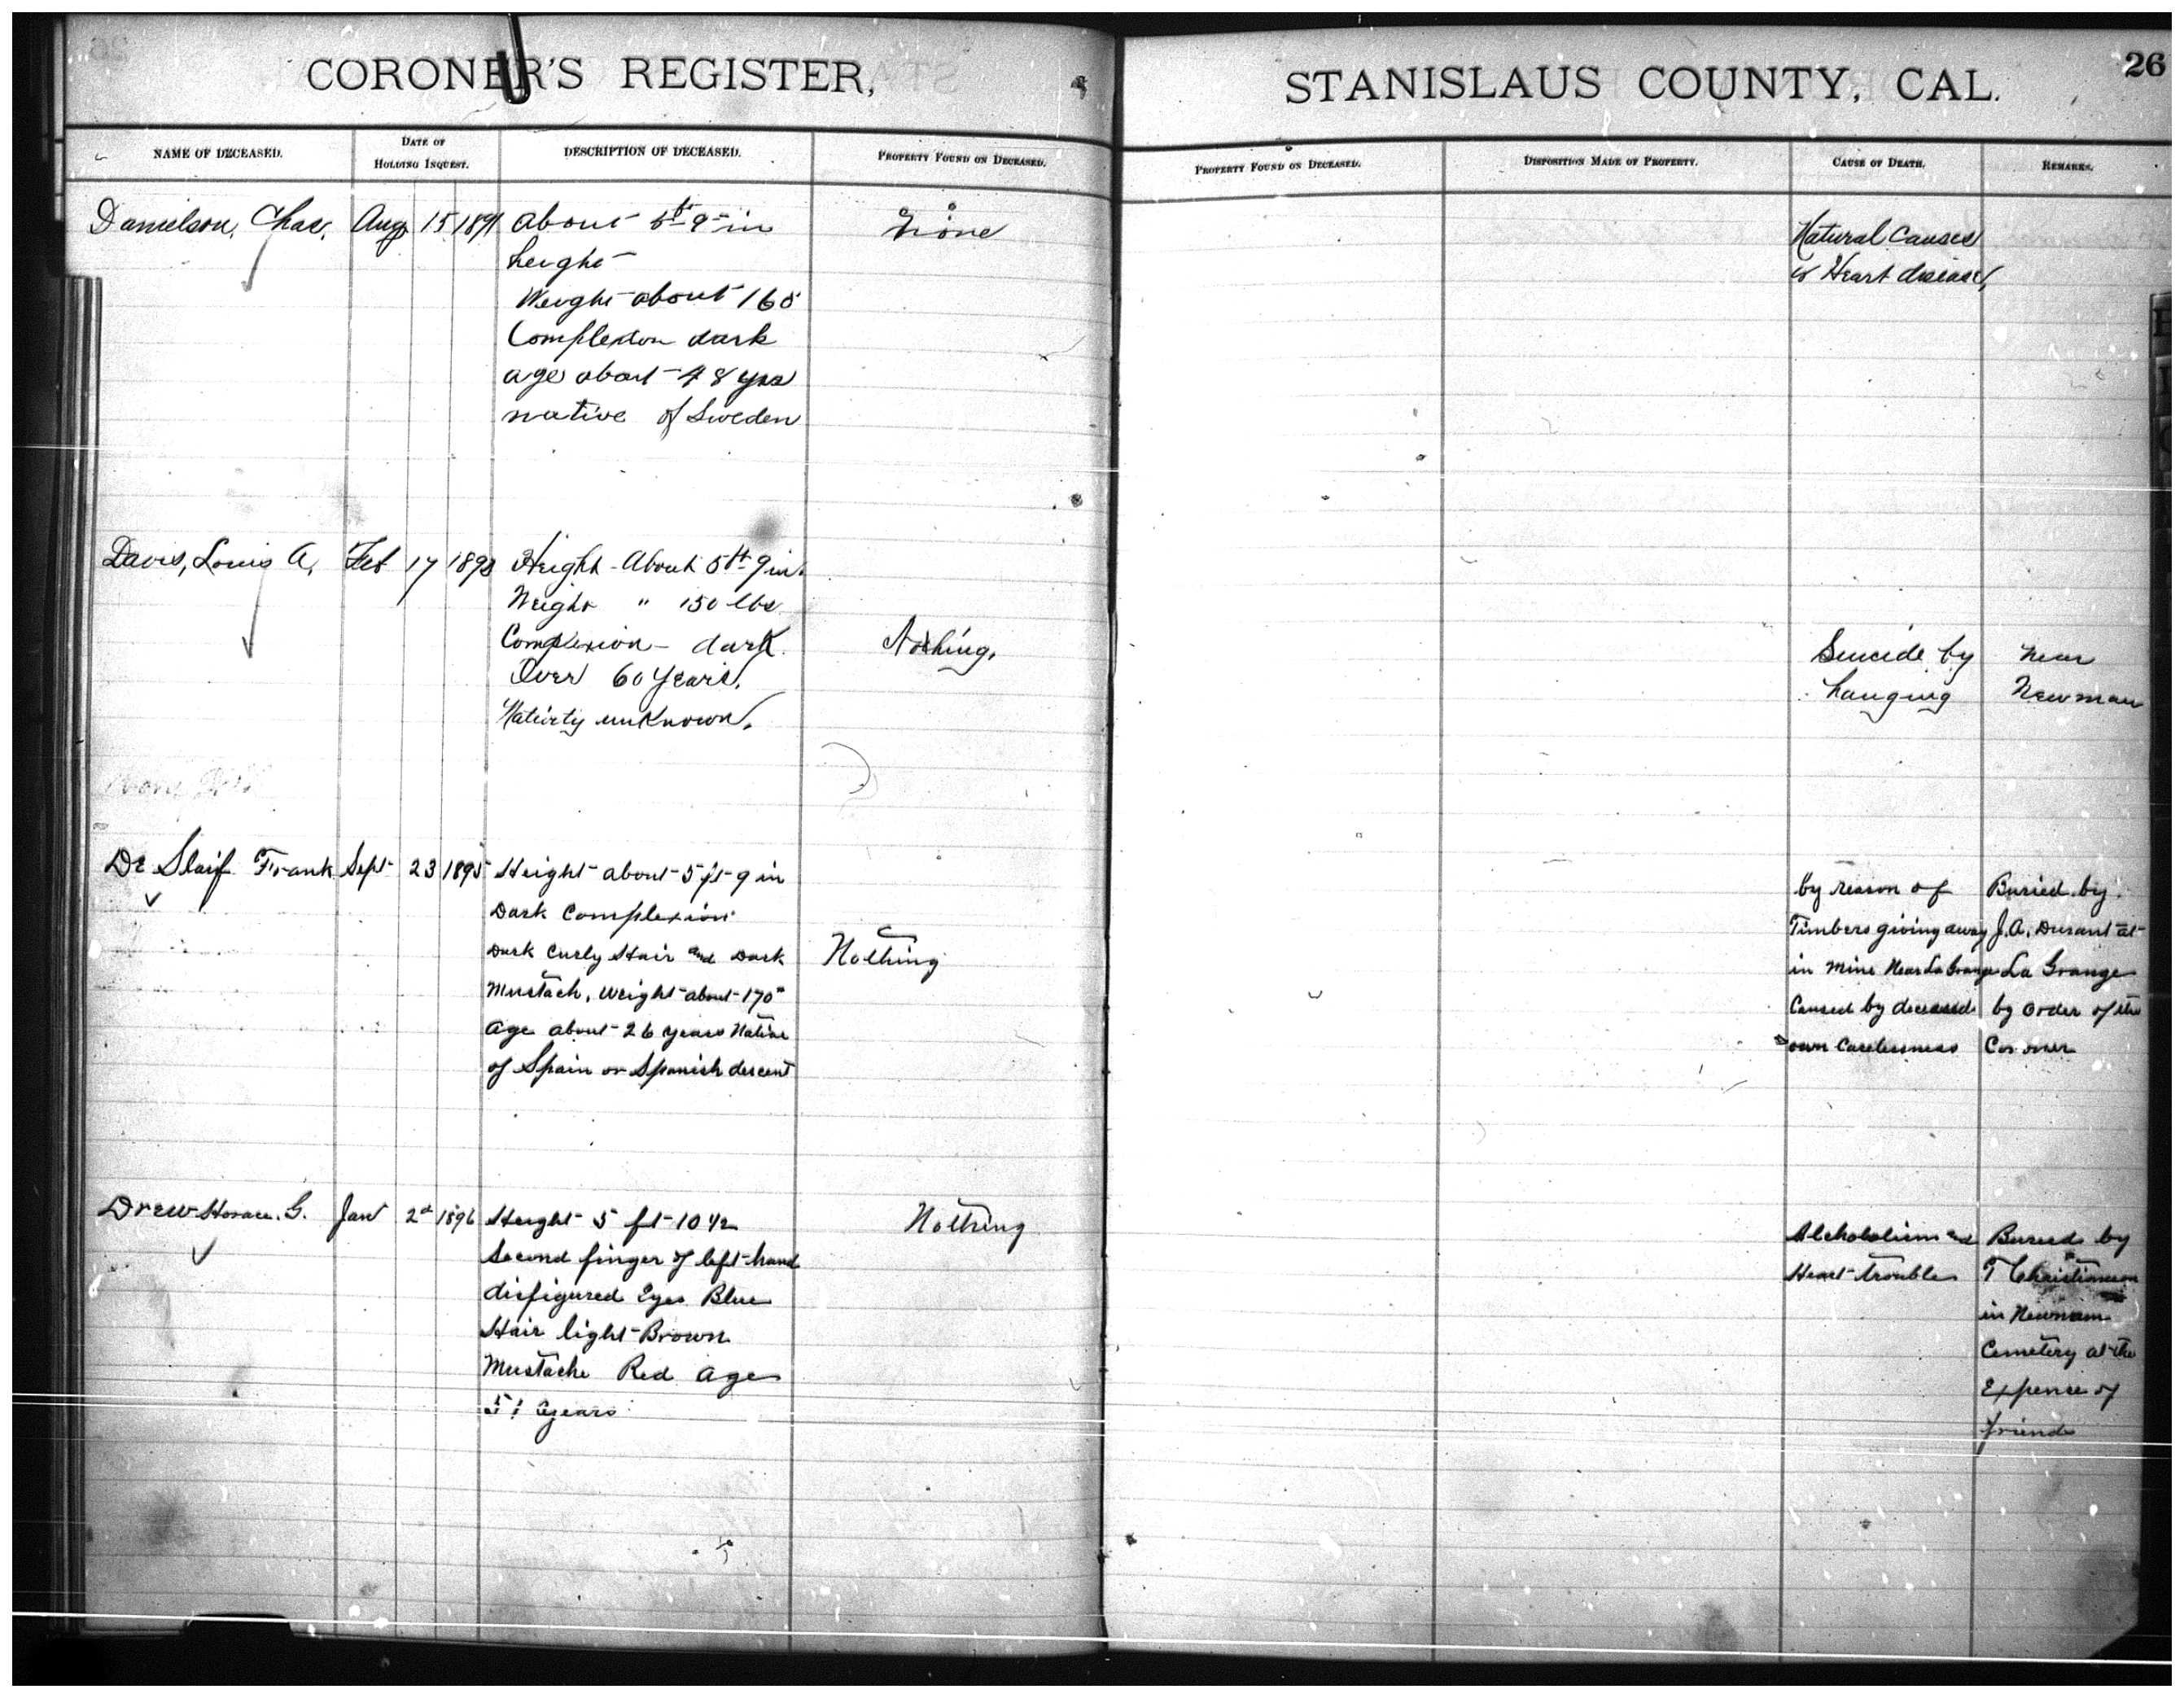 CORONER'S REGISTER,
STANISLAUS COUNTY, CAL.
26
NAME OF DECEASED.
DATE OF
HOLDING INQUEST.
DESCRIPTION OF DECEASED.
PROPERTY FOUND ON DECEASED.
PROPERTY FOUND ON DECEASED.
DISPOSITION MADE OF PROPERTY.
CAUSE OF DEATH.
REMARKS.
Danielson, Chas. Aug 15 1891 About 5ft 9 in
height
Weight about 165
Complexion dark
age about 48 yrs
native of Sweden
None
Natural Causes
or Heart disease,
Davis, Louis A, Feb 17 1893 Height About 5ft 9 in.
Weight " 150 lbs
Complexion - dark.
Over 60 years.
Nativity unknown.
Nothing.
Suicide by
hanging
near
Newman
De Slaif Frank Sept 23 1895 Height about 5 ft 9 in
Dark Complexion
Dark Curly Hair and Dark
Mustach, Weight about 170"
Age about 26 years Native
of Spain or Spanish descent
Nothing
by reason of
Timbers giving away
in mine Near La Grange
Caused by deceased
own Carelessness
Buried by
J. A. Durant at
La Grange
by order of the
Coroner
Drew Horace. G. Jan 2d 1896 Height 5 ft 10 1/2
Second finger of left hand
disfigured Eyes Blue
Hair light Brown
Mustache Red Age
51 years
Nothing
Alchololism and
Heart trouble
Buried by
T Christianson
in Newman
Cemetery at the
Expence of
friends